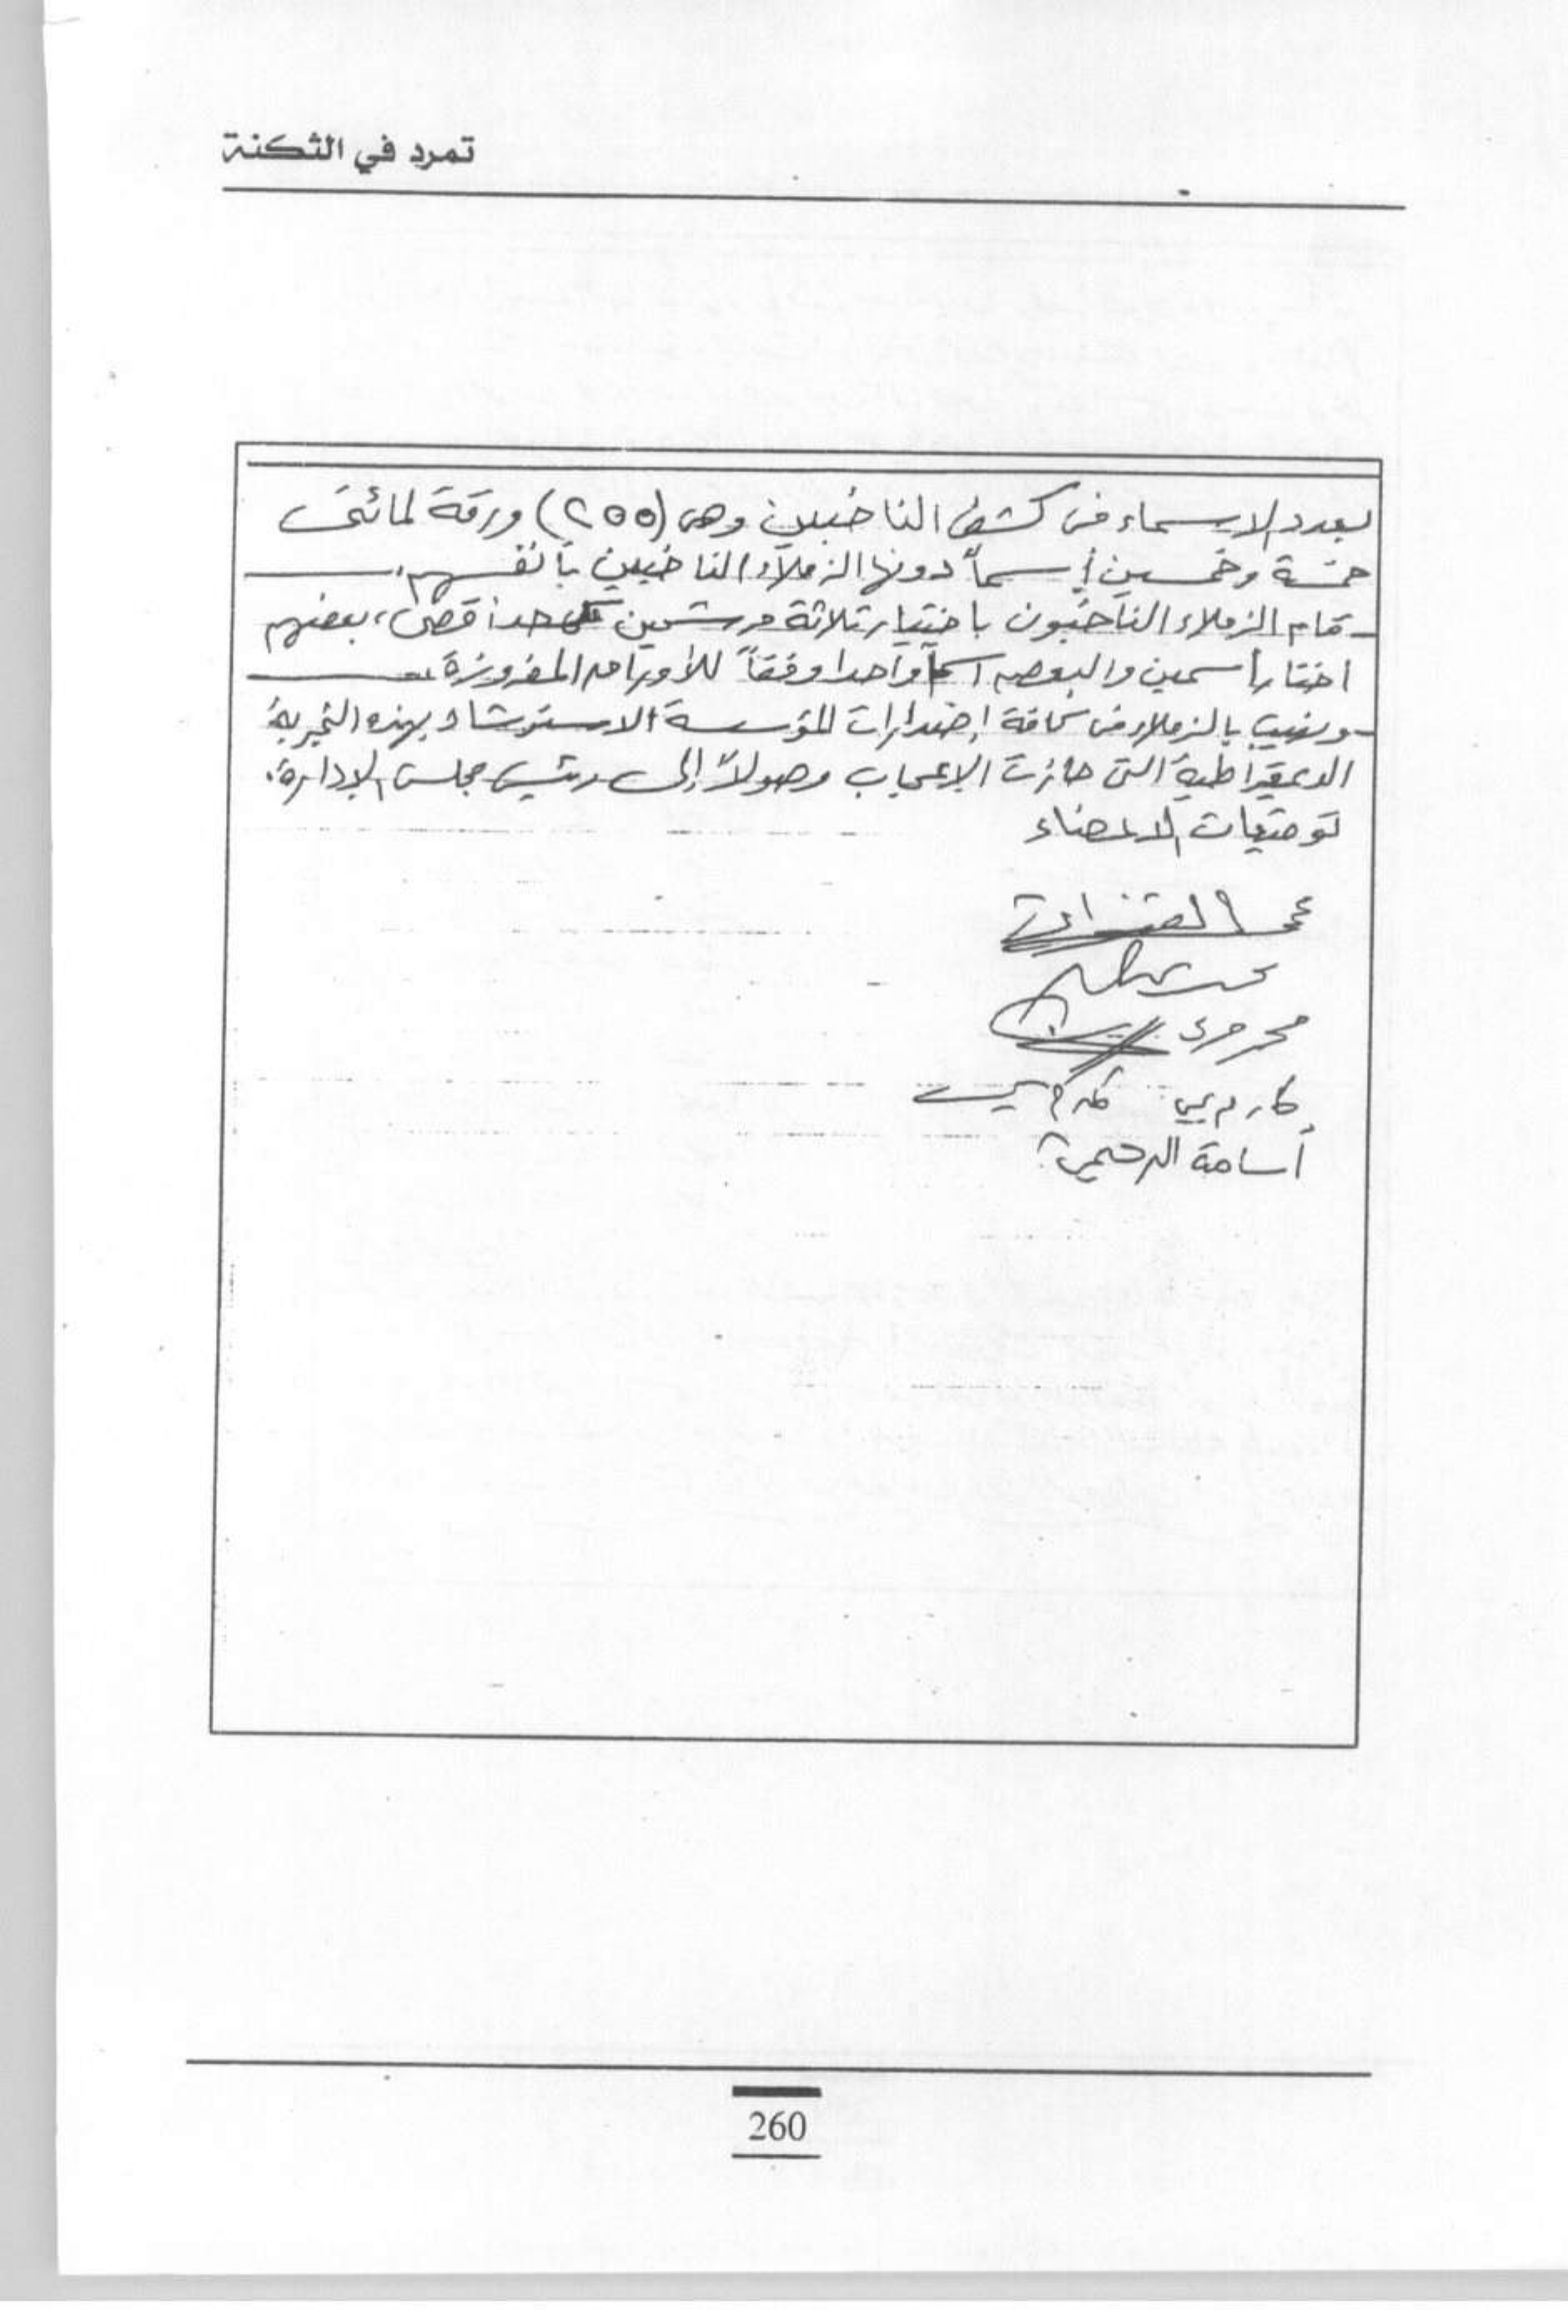 تمرد في الثكنة
بعدد الاسماء فى كشف الناخبين وهى (٢٥٥) ورقة لمائتى
خمسة وخمسين إسماً دونها الزملاء الناخبين بأنفسهم.
- قام الزملاء الناخبون باختيار ثلاثة مرشحين كحد أقصى، بعضهم
اختار أسمين والبعض اسماً واحدا وفقاً للأوراق المفروزة.
- ونهيب بالزملاء فى كافة إصدارات المؤسسة الاسترشاد بهذه التجربة
الديمقراطية التى حازت الإعجاب وصولاً إلى رئيس مجلس الإدارة.
توقيعات الاعضاء
محمود
كارم يحيى كارم يحيى
أسامة الرحيمى
260